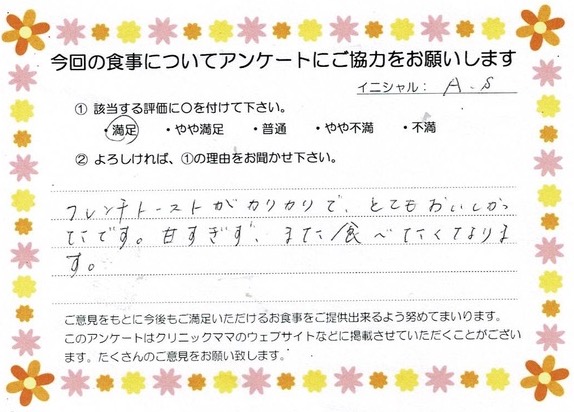 今回の食事についてアンケートにご協力をお願いします
イニシャル: A.S
① 該当する評価に○を付けて下さい。
・満足 ・やや満足 ・普通 ・やや不満 ・不満
② よろしければ、①の理由をお聞かせ下さい。
フレンチトーストがカリカリで、とてもおいしかっ
たです。甘すぎず、また食べたくなりま
す。
ご意見をもとに今後もご満足いただけるお食事をご提供出来るよう努めてまいります。
このアンケートはクリニックママのウェブサイトなどに掲載させていただくことがござい
ます。たくさんのご意見をお願い致します。